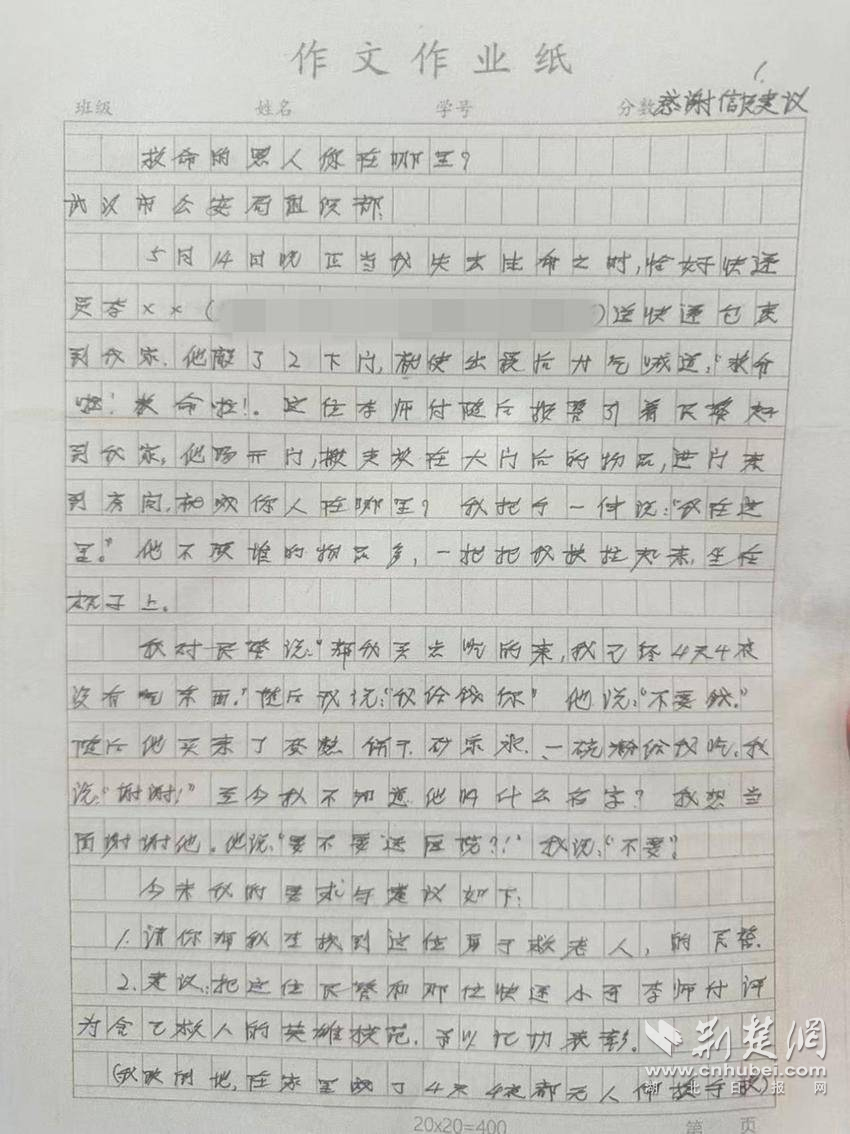 作文作业纸
1.
班级 姓名 学号 分数 感谢信及建议
救命的恩人你在哪里?
武汉市公安局直汉部:
5月14日晚正当我失去生命之时,恰好快递
员李××( )送快递包裹
到我家.他敲了2下门,我使出最后力气喊道:"救命
啦!救命啦!.这位李师付随后报警引着民警赶
到我家,他踢开门,搬走放在大门后的物品,进门来
到房间.起喊你人在哪里?我把手一伸说:"我在这
里."他不顾堆的物品多,一把把我扶拉起来,坐在
椅子上。
我对民警说:"帮我买点吃的来,我已经4天4夜
没有吃东西."随后我说:"我给钱你"他说:"不要钱."
随后他买来了蛋糕饼干矿泉水.一碗粉给我吃.我
说:"谢谢!"至今我不知道他叫什么名字?我想当
面谢谢他。他说:"要不要送医院?!"我说:"不要".
今来我的要求与建议如下:
1.请你帮我查找到这位勇于救老人,的民警.
2.建议:把这位民警和那位快递小哥李师付评
为舍己救人的英雄模范.予以记功表彰.
(我跌倒地,在家里喊了4天4夜都无人伸援手救)
荆楚网
www.cnhubei.com
湖北日报网
20x20=400 第 页